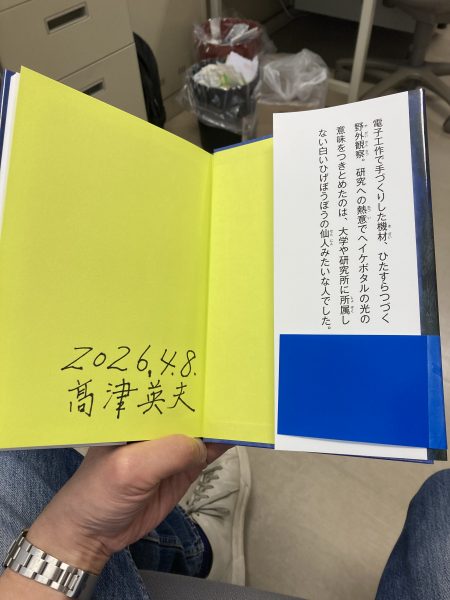 電子工作で手づくりした機材、ひたすらつづく
野外観察。研究への熱意でヘイケボタルの光の
意味をつきとめたのは、大学や研究所に所属し
ない白いひげぼうぼうの仙人みたいな人でした。
2026.4.8.
髙津英夫